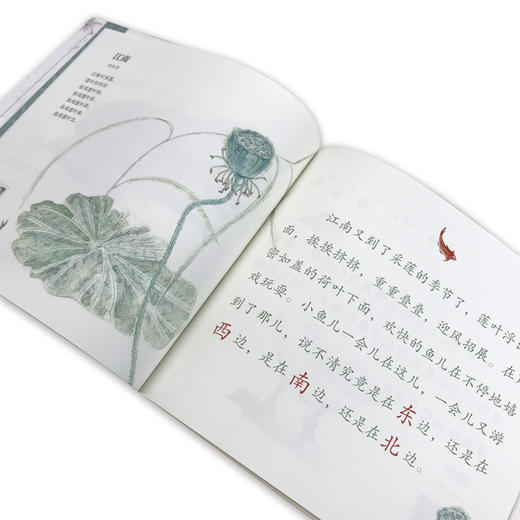 江南
江南可采莲，
莲叶何田田。
鱼戏莲叶间。
鱼戏莲叶东，
鱼戏莲叶西，
鱼戏莲叶南，
鱼戏莲叶北。
江南又到了采莲的季节了，莲叶浮出
面，挨挨挤挤，重重叠叠，迎风招展。在
密如盖的荷叶下面，欢快的鱼儿在不停地嬉
戏玩耍。小鱼儿一会儿在这儿，一会儿又游
到了那儿，说不清究竟是在东边，还是在
西边，是在南边，还是在北边。